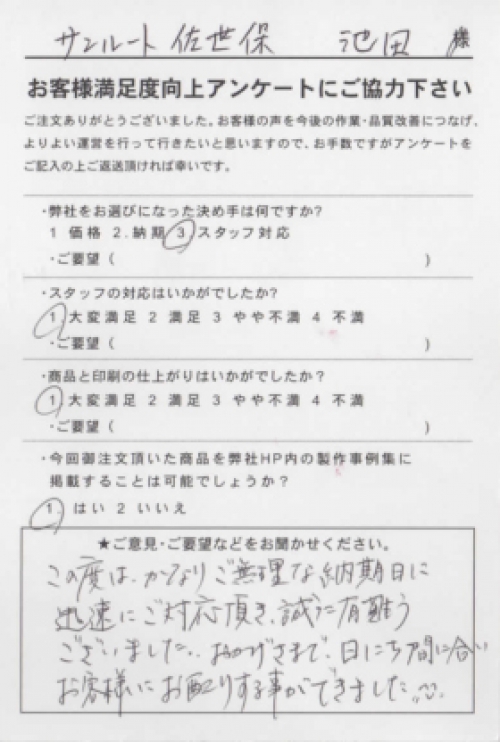 サンルート佐世保 池田 様
お客様満足度向上アンケートにご協力下さい
ご注文ありがとうございました。お客様の声を今後の作業・品質改善につなげ、
よりよい運営を行って行きたいと思いますので、お手数ですがアンケートを
ご記入の上ご返送頂ければ幸いです。
・弊社をお選びになった決め手は何ですか?
1 価格 2.納期 3 スタッフ対応
・ご要望( )
・スタッフの対応はいかがでしたか?
1 大変満足 2 満足 3 やや不満 4 不満
・ご要望( )
・商品と印刷の仕上がりはいかがでしたか?
1 大変満足 2 満足 3 やや不満 4 不満
・ご要望( )
・今回御注文頂いた商品を弊社HP内の製作事例集に
掲載することは可能でしょうか?
1. はい 2 いいえ
★ご意見・ご要望などをお聞かせください。
この度は、かなりご無理な納期日に
迅速にご対応頂き、誠に有難う
ございました。おかげさまで、日にち間に合い
お客様にお配りする事ができました。